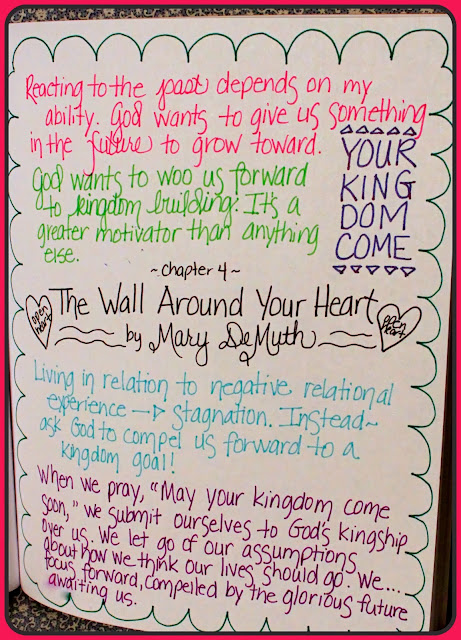 Reacting to the past depends on my
ability. God wants to give us something
in the future to grow toward.
God wants to woo us forward
to kingdom building. It's a
greater motivator than anything
else.
YOUR
KING
DOM
COME
~chapter 4~
The Wall Around Your Heart
by Mary DeMuth
open heart
open heart
Living in relation to negative relational
experience → stagnation. Instead~
ask God to compel us forward to a
kingdom goal!
When we pray, "May your kingdom come
soon," we submit ourselves to God's kingship
over us. We let go of our assumptions
about how we think our lives should go. We....
focus forward, compelled by the glorious future
awaiting us.